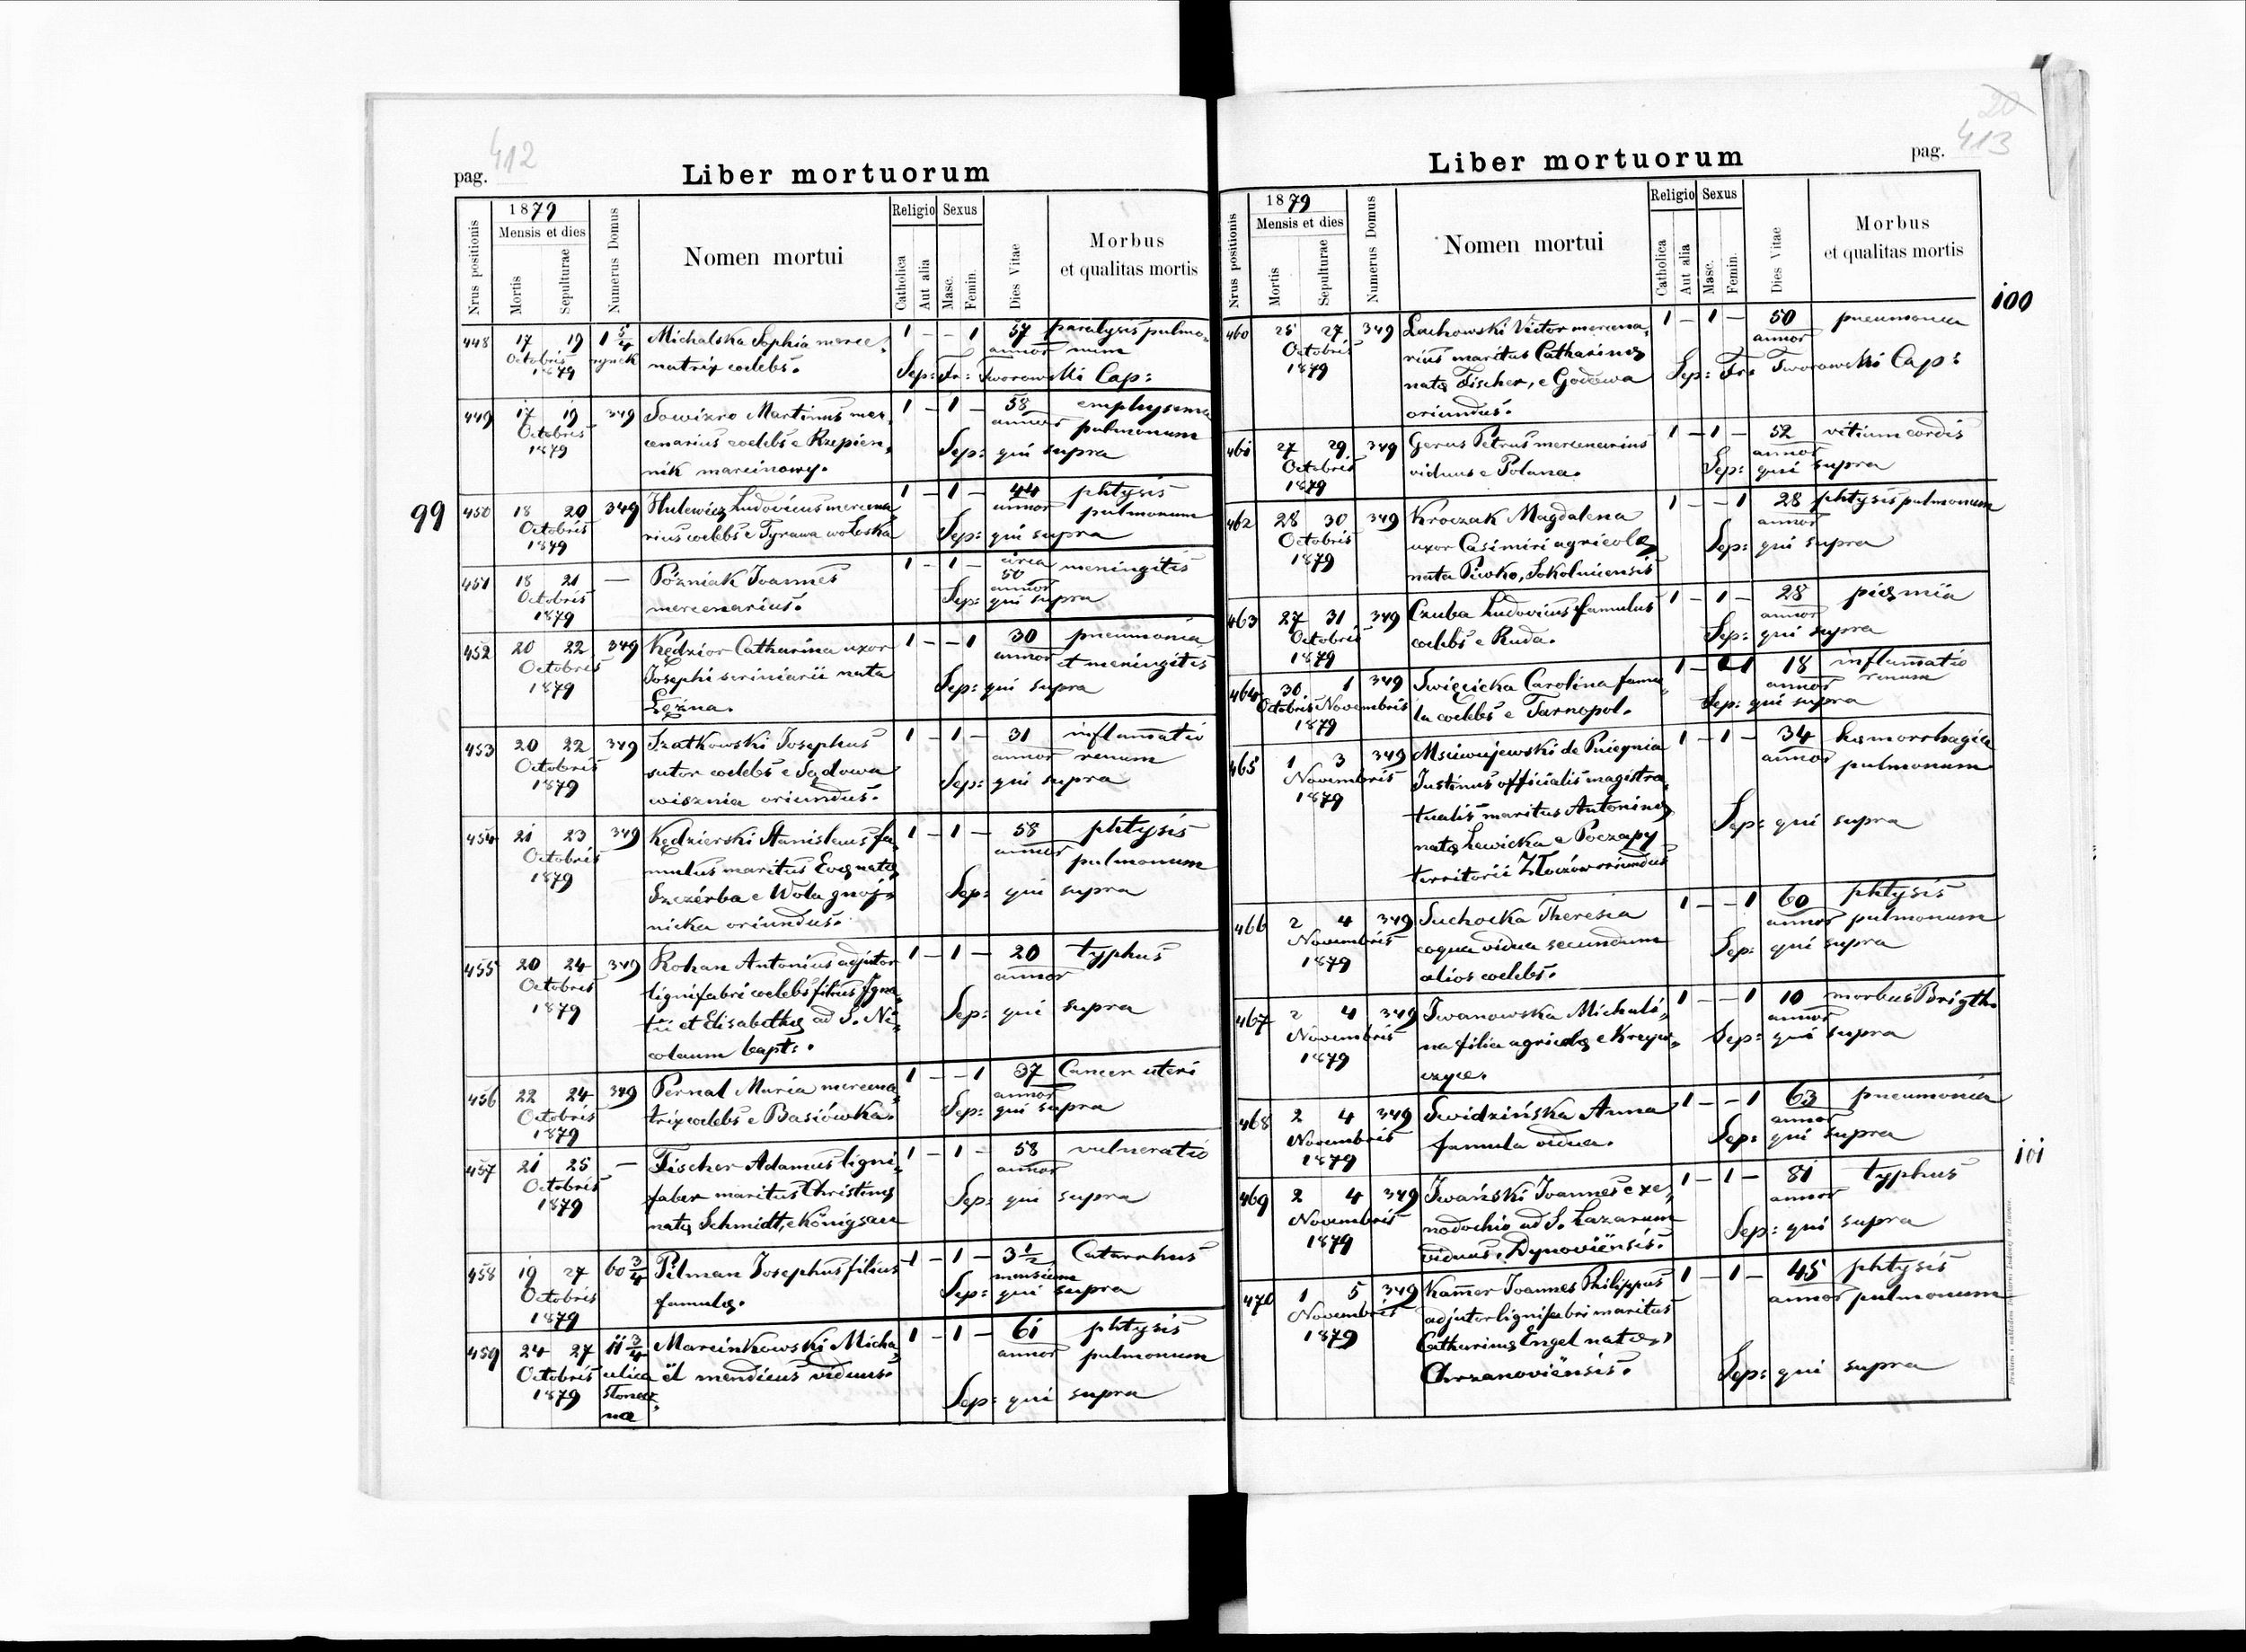 412
pag.
Liber mortuorum
Nrus positionis
1879
Mensis et dies
Mortis
Sepulturae
Numerus Domus
Nomen mortui
Religio
Catholica
Aut alia
Sexus
Masc.
Femin.
Dies Vitae
Morbus
et qualitas mortis
448 17 19 1 5/4 Michalska Sophia merce, 1 - - 1 57 paralysis pulmo,
Octobris rynek natrix coelebs. annor num
1879 Sep: Fr: Tworowski Cap:
449 17 19 349 Sowizro Martinus mer, 1 - 1 - 58 emphysema
Octobris cenarius coelebs e Rzepien, annor pulmonum
1879 nik marcinowy. Sep: qui supra
99
450 18 20 349 Hulewicz Ludovicus mercena, 1 - 1 - 44 phtysis
Octobris rius coelebs e Tyrawa wołoska annor pulmonum
1879 Sep: qui supra
451 18 21 — Pózniak Joannes 1 - 1 - circa 50 meningitis
Octobris mercenarius. annor
1879 Sep: qui supra
452 20 22 349 Kędzior Catharina uxor 1 - - 1 30 pneumonia
Octobris Josephi scriniarii nata annor et meningitis
1879 Łęzna. Sep: qui supra
453 20 22 349 Szatkowski Josephus 1 - 1 - 31 inflamatio
Octobris sutor coelebs e Sądowa annor renum
1879 wisznia oriundus. Sep: qui supra
454 21 23 349 Kędzierski Stanislaus fa, 1 - 1 - 58 phtysis
Octobris mulus maritus Evae natae annor pulmonum
1879 Szczérba e Wola gnoj, Sep: qui supra
nicka oriundus.
455 20 24 349 Rohan Antonius adjutor 1 - 1 - 20 typhus
Octobris lignifabri coelebs filius Igna, annor
1879 tii et Elisabethae ad S. Ni, Sep: qui supra
colaum bapt:.
456 22 24 349 Pernal Maria mercena, 1 - - 1 37 Cancer uteri
Octobris trix coelebs e Basiówka. annor
1879 Sep: qui supra
457 21 25 — Fischer Adamus ligni, 1 - 1 - 58 vulneratio
Octobris faber maritus Christinae annor
1879 natae Schmidt, e Königsau Sep: qui supra
458 19 27 60 3/4 Pilman Josephus filius 1 - 1 - 3 1/2 Catarrhus
Octobris famulae. mensium
1879 Sep: qui supra
459 24 27 11 3/4 Marcinkowski Micha, 1 - 1 - 61 phtysis
Octobris ulica ël mendicus viduus. annor pulmonum
1879 słonecz, na Sep: qui supra
20
413
pag.
Liber mortuorum
Nrus positionis
1879
Mensis et dies
Mortis
Sepulturae
Numerus Domus
Nomen mortui
Religio
Catholica
Aut alia
Sexus
Masc.
Femin.
Dies Vitae
Morbus
et qualitas mortis
100
460 25 27 349 Lachowski Victor mercena, 1 - 1 - 50 pneumonia
Octobris rius maritus Catharinae annor
1879 natae Fischer, e Godowa Sep: Fr: Tworowski Cap:
oriundus.
461 27 29 349 Gerus Petrus mercenarius 1 - 1 - 52 vitium cordis
Octobris viduus e Polana. annor
1879 Sep: qui supra
462 28 30 349 Kroczak Magdalena 1 - - 1 28 phtysis pulmonum
Octobris uxor Casimiri agricolae annor
1879 nata Piwko, Sokolnicensis Sep: qui supra
463 27 31 349 Czuba Ludovicus famulus 1 - 1 - 28 piaemia
Octobris coelebs e Ruda. annor
1879 Sep: qui supra
464 30 1 349 Swięcicka Carolina famu, 1 - - 1 18 inflamatio
Octobris Novembris la coelebs e Tarnopol. annor renum
1879 Sep: qui supra
465 1 3 349 Msciwujewski de Pniegnia 1 - 1 - 34 haemorrhagia
Novembris Justinus officialis magistra, annor pulmonum
1879 tualis maritus Antoninae
natae Lewicka e Poczapy Sep: qui supra
territorii Złoczów oriundus
466 2 4 349 Suchocka Theresia 1 - - 1 60 phtysis
Novembris coqua vidua secundum annor pulmonum
1879 alios coelebs. Sep: qui supra
467 2 4 349 Iwanowska Michali, 1 - - 1 10 morbus Brigth.
Novembris na filia agricolae e Krzyw, annor
1879 czyce. Sep: qui supra
468 2 4 349 Swidzińska Anna 1 - - 1 63 pneumonia
Novembris famula vidua. annor
1879 Sep: qui supra
101
469 2 4 349 Iwański Joannes e xe, 1 - 1 - 81 typhus
Novembris nodochio ad S. Lazarum annor
1879 viduus, Dynoviënsis. Sep: qui supra
470 1 5 349 Kam̄er Joannes Philippus 1 - 1 - 45 phtysis
Novembris adjutor lignifabri maritus annor pulmonum
1879 Catharinae Engel natae,
Chrzanoviënsis. Sep: qui supra